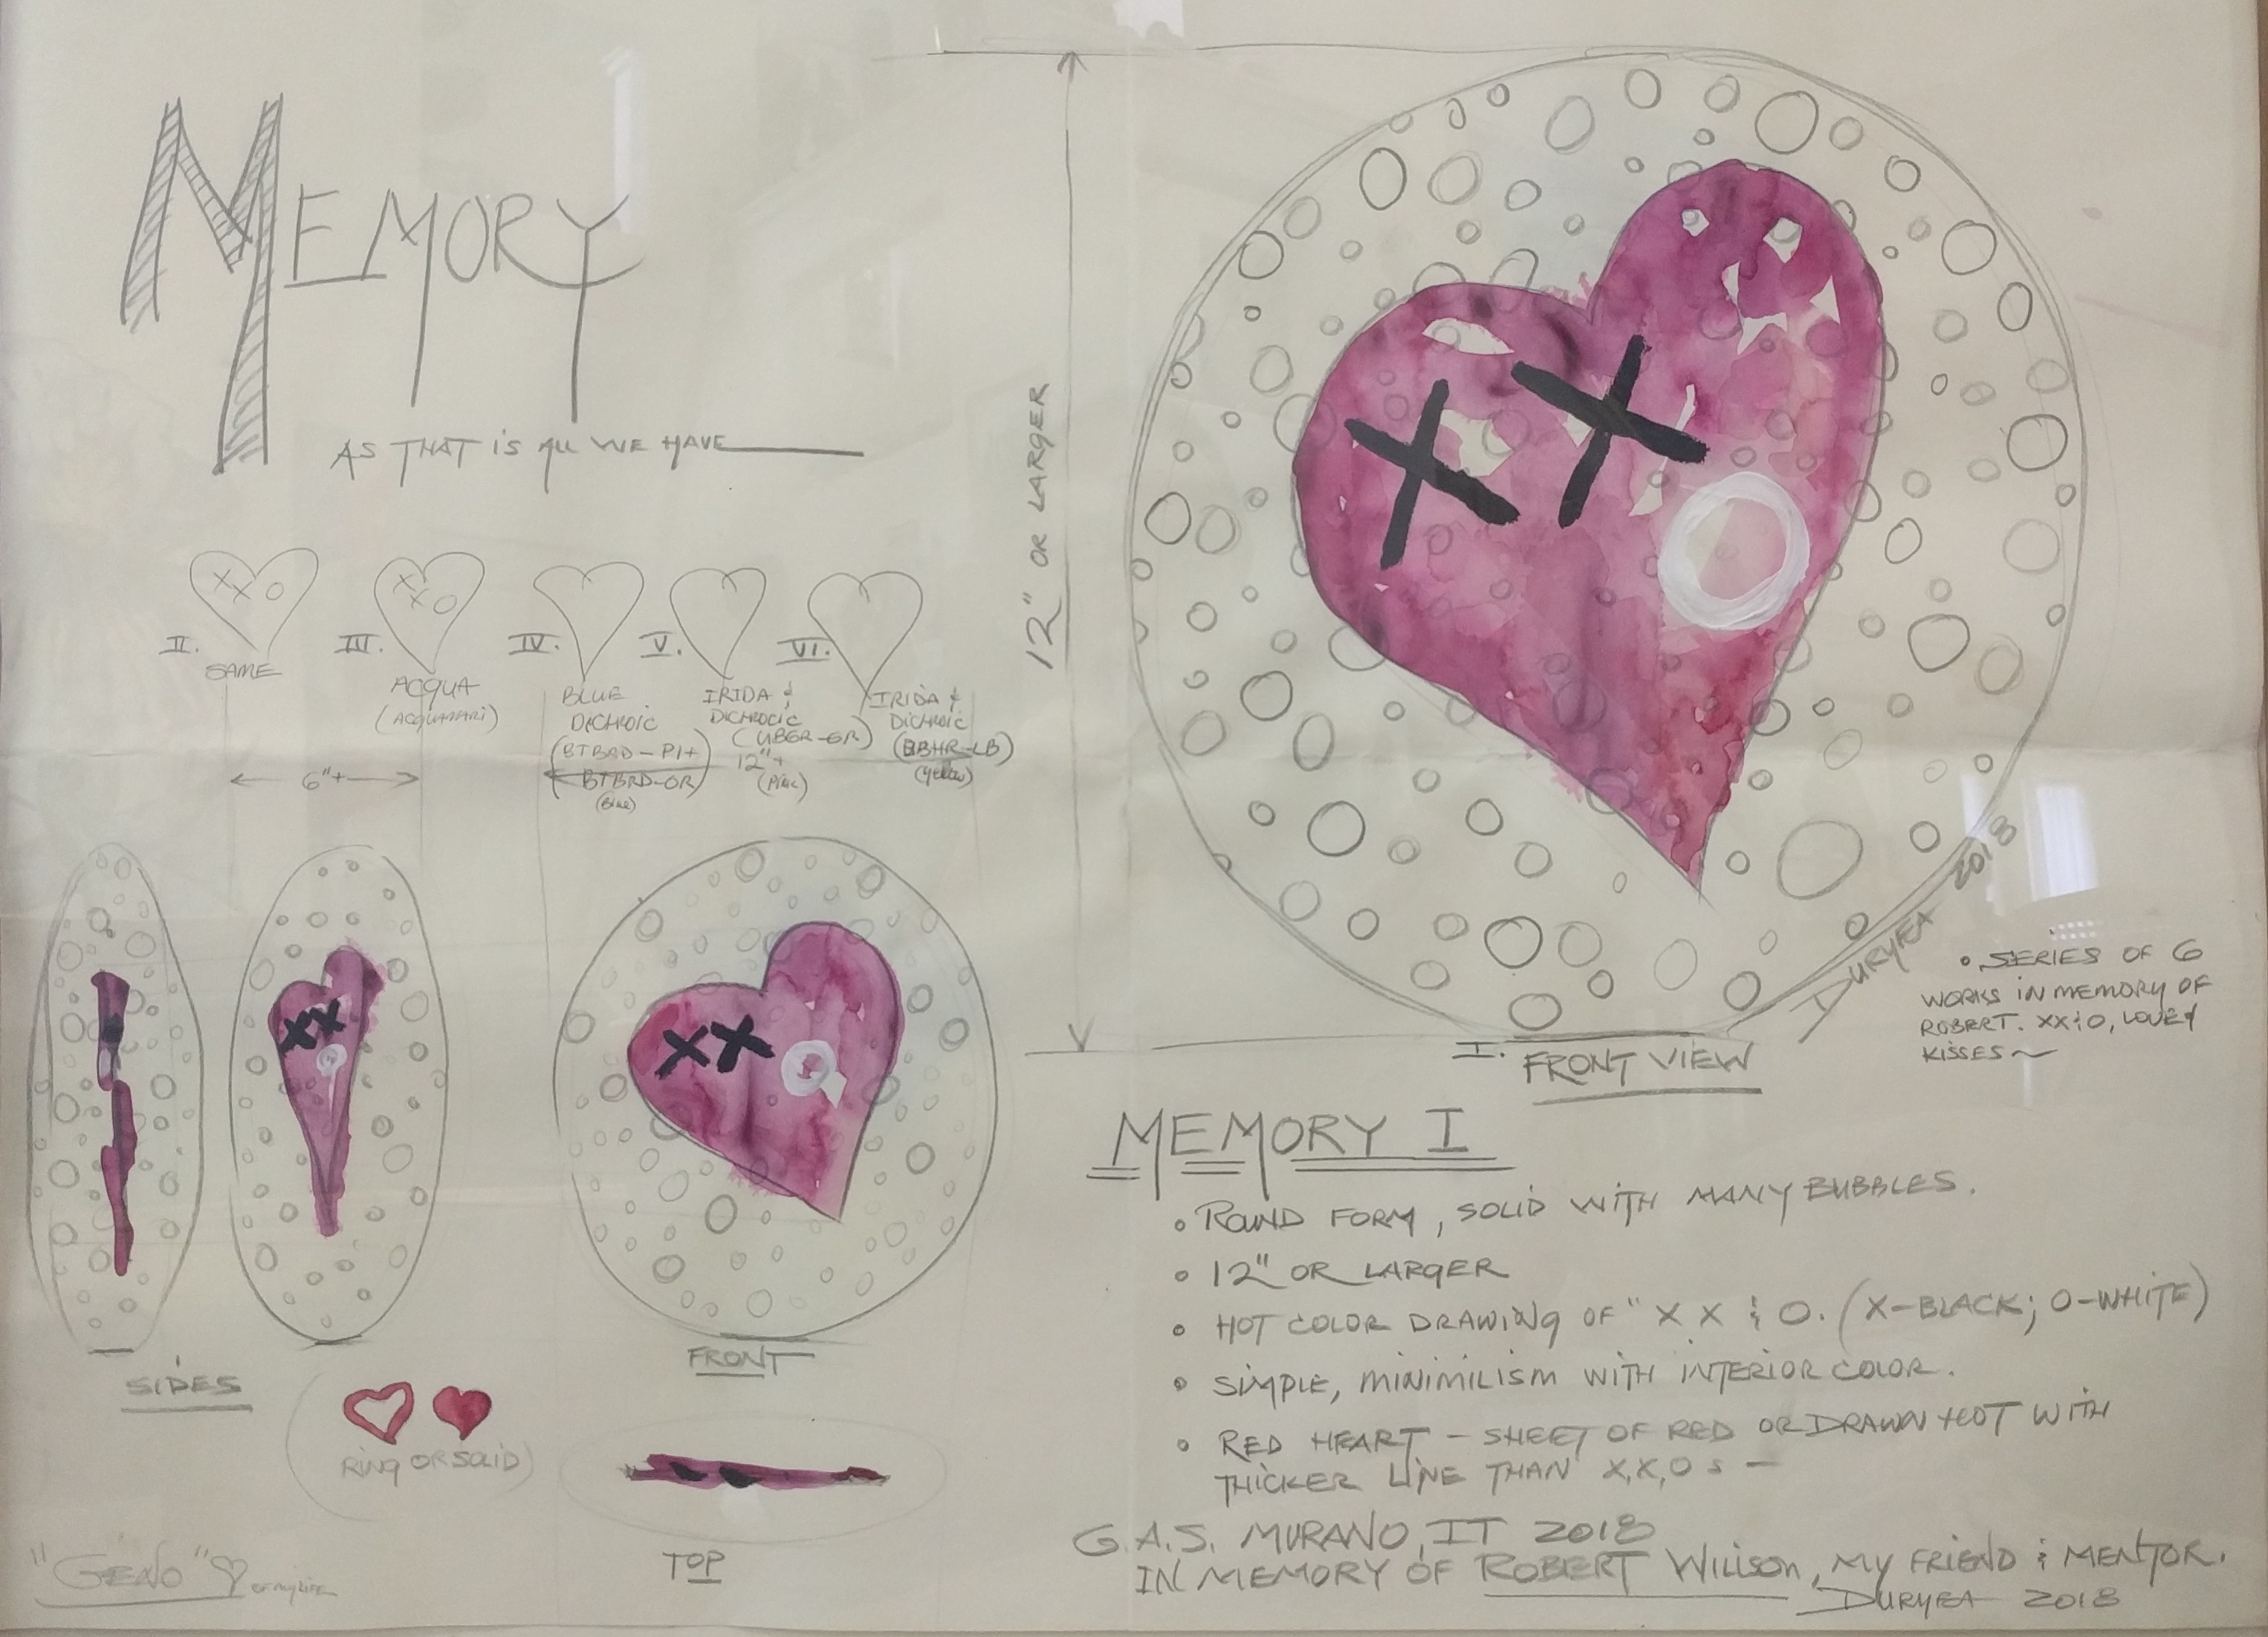 MEMORY
AS THAT IS ALL WE HAVE
12" OR LARGER
XX O
XX O
II.
III.
IV.
V.
VI.
SAME
ACQUA
(ACQUAMARI)
BLUE
DICHROIC
(BTBRD-P1+
BTBRD-OR)
(Blue)
IRIDA &
DICHROCIC
(UBGR-GR)
12"+
(Pink)
IRIDA &
DICHROIC
(BBHR-LB)
(Yellow)
6"+
XX O
DURYEA 2018
• SERIES OF 6
WORKS IN MEMORY OF
ROBERT. XX&O, LOVE &
KISSES~
I. FRONT VIEW
XX O
XX O
SIDES
FRONT
RING OR SOLID
TOP
"GENO" OF MY LIFE
MEMORY I
• ROUND FORM, SOLID WITH MANY BUBBLES.
• 12" OR LARGER
• HOT COLOR DRAWING OF "X X & O. (X-BLACK; O-WHITE)
• SIMPLE, MINIMILISM WITH INTERIOR COLOR.
• RED HEART - SHEET OF RED OR DRAWN HOT WITH
THICKER LINE THAN X,X,O s -
G.A.S. MURANO, IT 2018
IN MEMORY OF ROBERT Willson, MY FRIEND & MENTOR.
DURYEA 2018